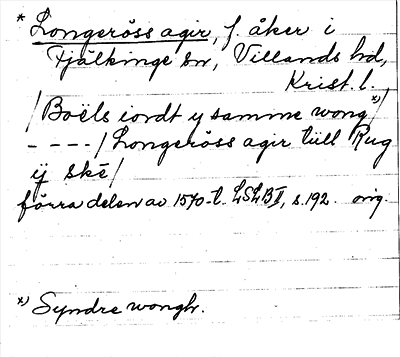 * Longeröss agir, f. åker i
Fjälkinge sn, Villands hd,
Krist. l.
/Boëls iordt y samme wong*)/
- - - -/ Longeröss agir tüll Rug
ÿ skē/
förra delen av 1570-t. LSLB II, s. 192. orig.
*) Syndre wongh.